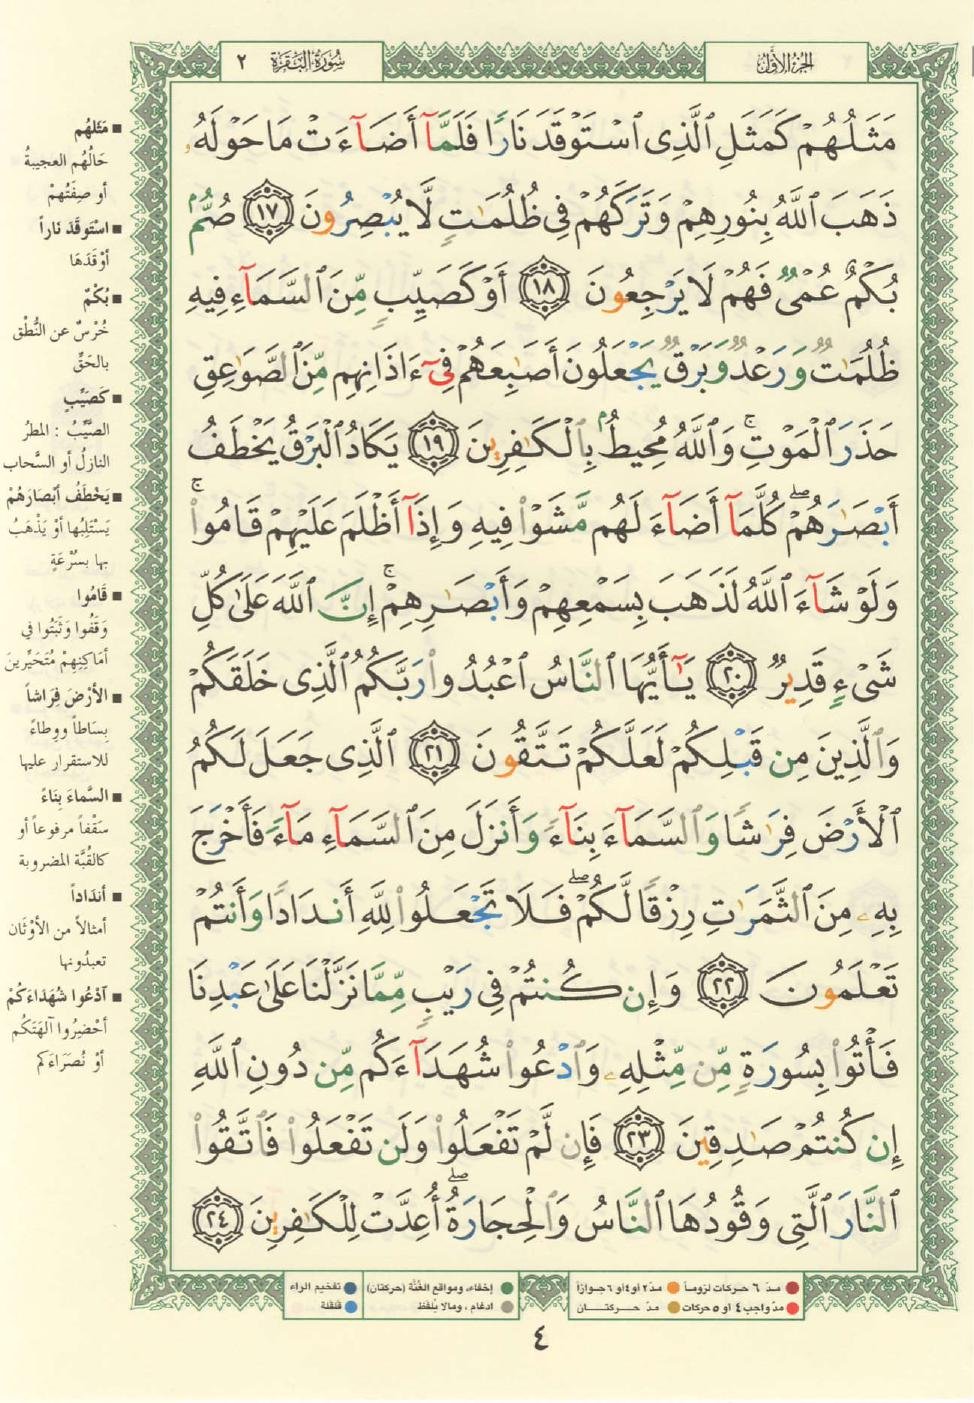 الجزء الأول
سورة البقرة ٢
مَثَلُهُمْ كَمَثَلِ ٱلَّذِى ٱسْتَوْقَدَ نَارًا فَلَمَّآ أَضَآءَتْ مَا حَوْلَهُۥ
ذَهَبَ ٱللَّهُ بِنُورِهِمْ وَتَرَكَهُمْ فِى ظُلُمَٰتٍ لَّا يُبْصِرُونَ ١٧ صُمٌّۢ
بُكْمٌ عُمْىٌ فَهُمْ لَا يَرْجِعُونَ ١٨ أَوْ كَصَيِّبٍ مِّنَ ٱلسَّمَآءِ فِيهِ
ظُلُمَٰتٌ وَرَعْدٌ وَبَرْقٌ يَجْعَلُونَ أَصَٰبِعَهُمْ فِىٓ ءَاذَانِهِم مِّنَ ٱلصَّوَٰعِقِ
حَذَرَ ٱلْمَوْتِ ۚ وَٱللَّهُ مُحِيطٌۢ بِٱلْكَٰفِرِينَ ١٩ يَكَادُ ٱلْبَرْقُ يَخْطَفُ
أَبْصَٰرَهُمْ ۖ كُلَّمَآ أَضَآءَ لَهُم مَّشَوْا۟ فِيهِ وَإِذَآ أَظْلَمَ عَلَيْهِمْ قَامُوا۟ ۚ
وَلَوْ شَآءَ ٱللَّهُ لَذَهَبَ بِسَمْعِهِمْ وَأَبْصَٰرِهِمْ ۚ إِنَّ ٱللَّهَ عَلَىٰ كُلِّ
شَىْءٍ قَدِيرٌ ٢٠ يَٰٓأَيُّهَا ٱلنَّاسُ ٱعْبُدُوا۟ رَبَّكُمُ ٱلَّذِى خَلَقَكُمْ
وَٱلَّذِينَ مِن قَبْلِكُمْ لَعَلَّكُمْ تَتَّقُونَ ٢١ ٱلَّذِى جَعَلَ لَكُمُ
ٱلْأَرْضَ فِرَٰشًا وَٱلسَّمَآءَ بِنَآءً وَأَنزَلَ مِنَ ٱلسَّمَآءِ مَآءً فَأَخْرَجَ
بِهِۦ مِنَ ٱلثَّمَرَٰتِ رِزْقًا لَّكُمْ ۖ فَلَا تَجْعَلُوا۟ لِلَّهِ أَندَادًا وَأَنتُمْ
تَعْلَمُونَ ٢٢ وَإِن كُنتُمْ فِى رَيْبٍ مِّمَّا نَزَّلْنَا عَلَىٰ عَبْدِنَا
فَأْتُوا۟ بِسُورَةٍ مِّن مِّثْلِهِۦ وَٱدْعُوا۟ شُهَدَآءَكُم مِّن دُونِ ٱللَّهِ
إِن كُنتُمْ صَٰدِقِينَ ٢٣ فَإِن لَّمْ تَفْعَلُوا۟ وَلَن تَفْعَلُوا۟ فَٱتَّقُوا۟
ٱلنَّارَ ٱلَّتِى وَقُودُهَا ٱلنَّاسُ وَٱلْحِجَارَةُ ۖ أُعِدَّتْ لِلْكَٰفِرِينَ ٢٤
■ مَثَلُهُم
حَالُهُم العجيبةُ
أو صِفَتُهمْ
■ اسْتَوقَدَ نَاراً
أوْقَدَهَا
■ بُكْمٌ
خُرْسٌ عن النُّطْق
بالحَقِّ
■ كَصَيِّبٍ
الصَّيِّبُ : المطرُ
النازلُ أو السَّحاب
■ يَخْطَفُ أبْصَارَهُمْ
يَسْتَلِبُها أوْ يَذْهَبُ
بها بسُرْعَةٍ
■ قَامُوا
وَقَفُوا وَثَبَتُوا في
أمَاكِنِهِمْ مُتَحَيِّرينَ
■ الأرْضَ فِرَاشاً
بِسَاطاً وَوِطَاءً
للاستقرار عليها
■ السَّماءَ بِنَاءً
سَقْفاً مرفوعاً أو
كالقُبَّة المضروبة
■ أندَاداً
أمثالاً من الأوْثَان
تعبدُونها
■ آدْعُوا شُهَدَاءَكُمْ
أحْضِرُوا آلهَتَكُم
أوْ نُصَرَاءَكم
مدّ ٦ حركات لزوماً ● مدّ ٢ أو ٤ أو ٦ جوازاً
مدّ واجب ٤ أو ٥ حركات ● مدّ حركتان
إخفاء، ومواقع الغُنَّة (حركتان) ● تفخيم الراء
ادغام ، ومالا يُلفَظ ● قلقلة
٤